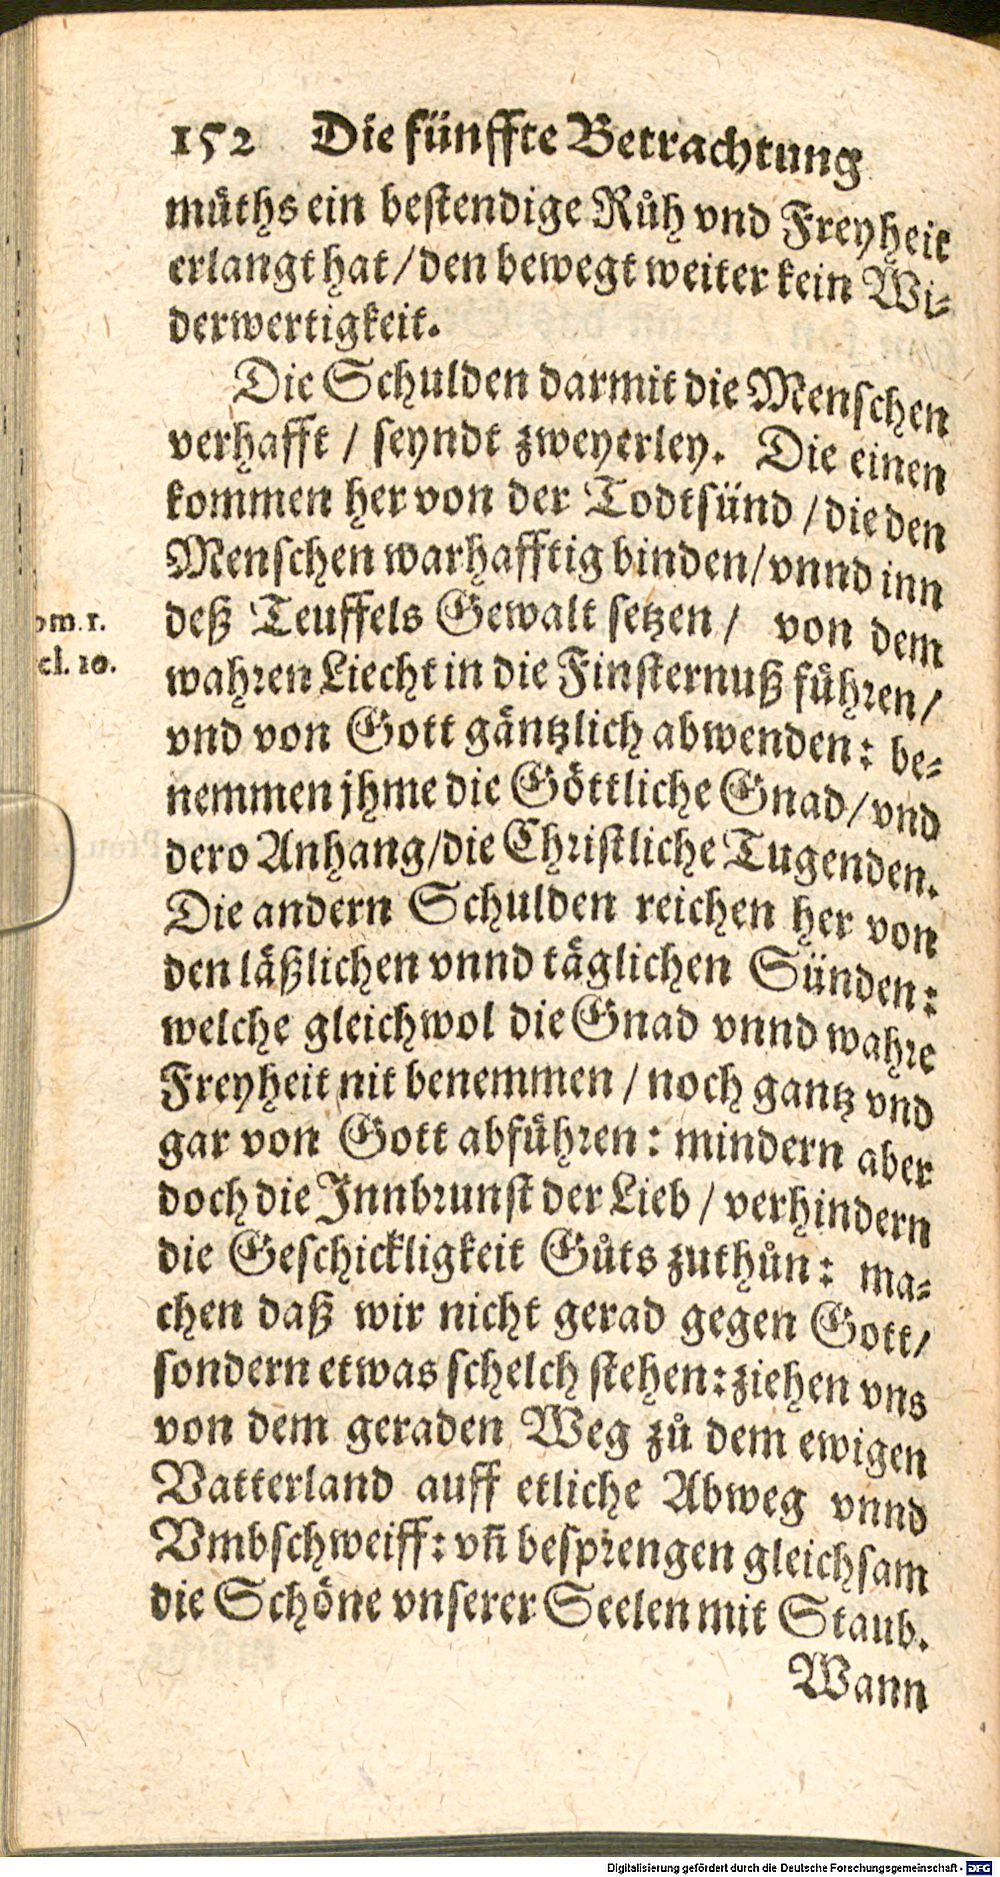 152 Die fünffte Betrachtung
müths ein bestendige Růh vnd Freyheit
erlangt hat / den bewegt weiter kein Wi-
derwertigkeit.
Die Schulden darmit die Menschen
verhafft / seyndt zweyerley. Die einen
kommen her von der Todtsünd / die den
Menschen warhafftig binden / vnnd inn
deß Teuffels Gewalt setzen / von dem
om. 1.
cl. 10.
wahren Liecht in die Finsternuß führen /
vnd von Gott gäntzlich abwenden: be-
nemmen jhme die Göttliche Gnad / vnd
dero Anhang / die Christliche Tugenden.
Die andern Schulden reichen her von
den läßlichen vnnd täglichen Sünden:
welche gleichwol die Gnad vnnd wahre
Freyheit nit benemmen / noch gantz vnd
gar von Gott abführen: mindern aber
doch die Innbrunst der Lieb / verhindern
die Geschickligkeit Gůts zuthůn: ma-
chen daß wir nicht gerad gegen Gott /
sondern etwas schelch stehen: ziehen vns
von dem geraden Weg zů dem ewigen
Vatterland auff etliche Abweg vnnd
Vmbschweiff: vñ besprengen gleichsam
die Schöne vnserer Seelen mit Staub.
Wann
Digitalisierung gefördert durch die Deutsche Forschungsgemeinschaft - DFG